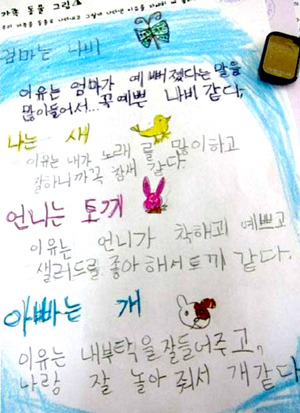 가족 동물 그림
엄마는 나비
이유는 엄마가 예뻐졌다는 말을
많이들어서... 꼭 예쁜 나비 같다.
나는 새
이유는 내가 노래를 많이하고
잘하니까 꼭 참새 같다.
언니는 토끼
이유는 언니가 착하고 예쁘고
샐러드를 좋아해서 토끼 같다.
아빠는 개
이유는 내부탁을 잘들어주고,
나랑 잘 놀아 줘서 개같다